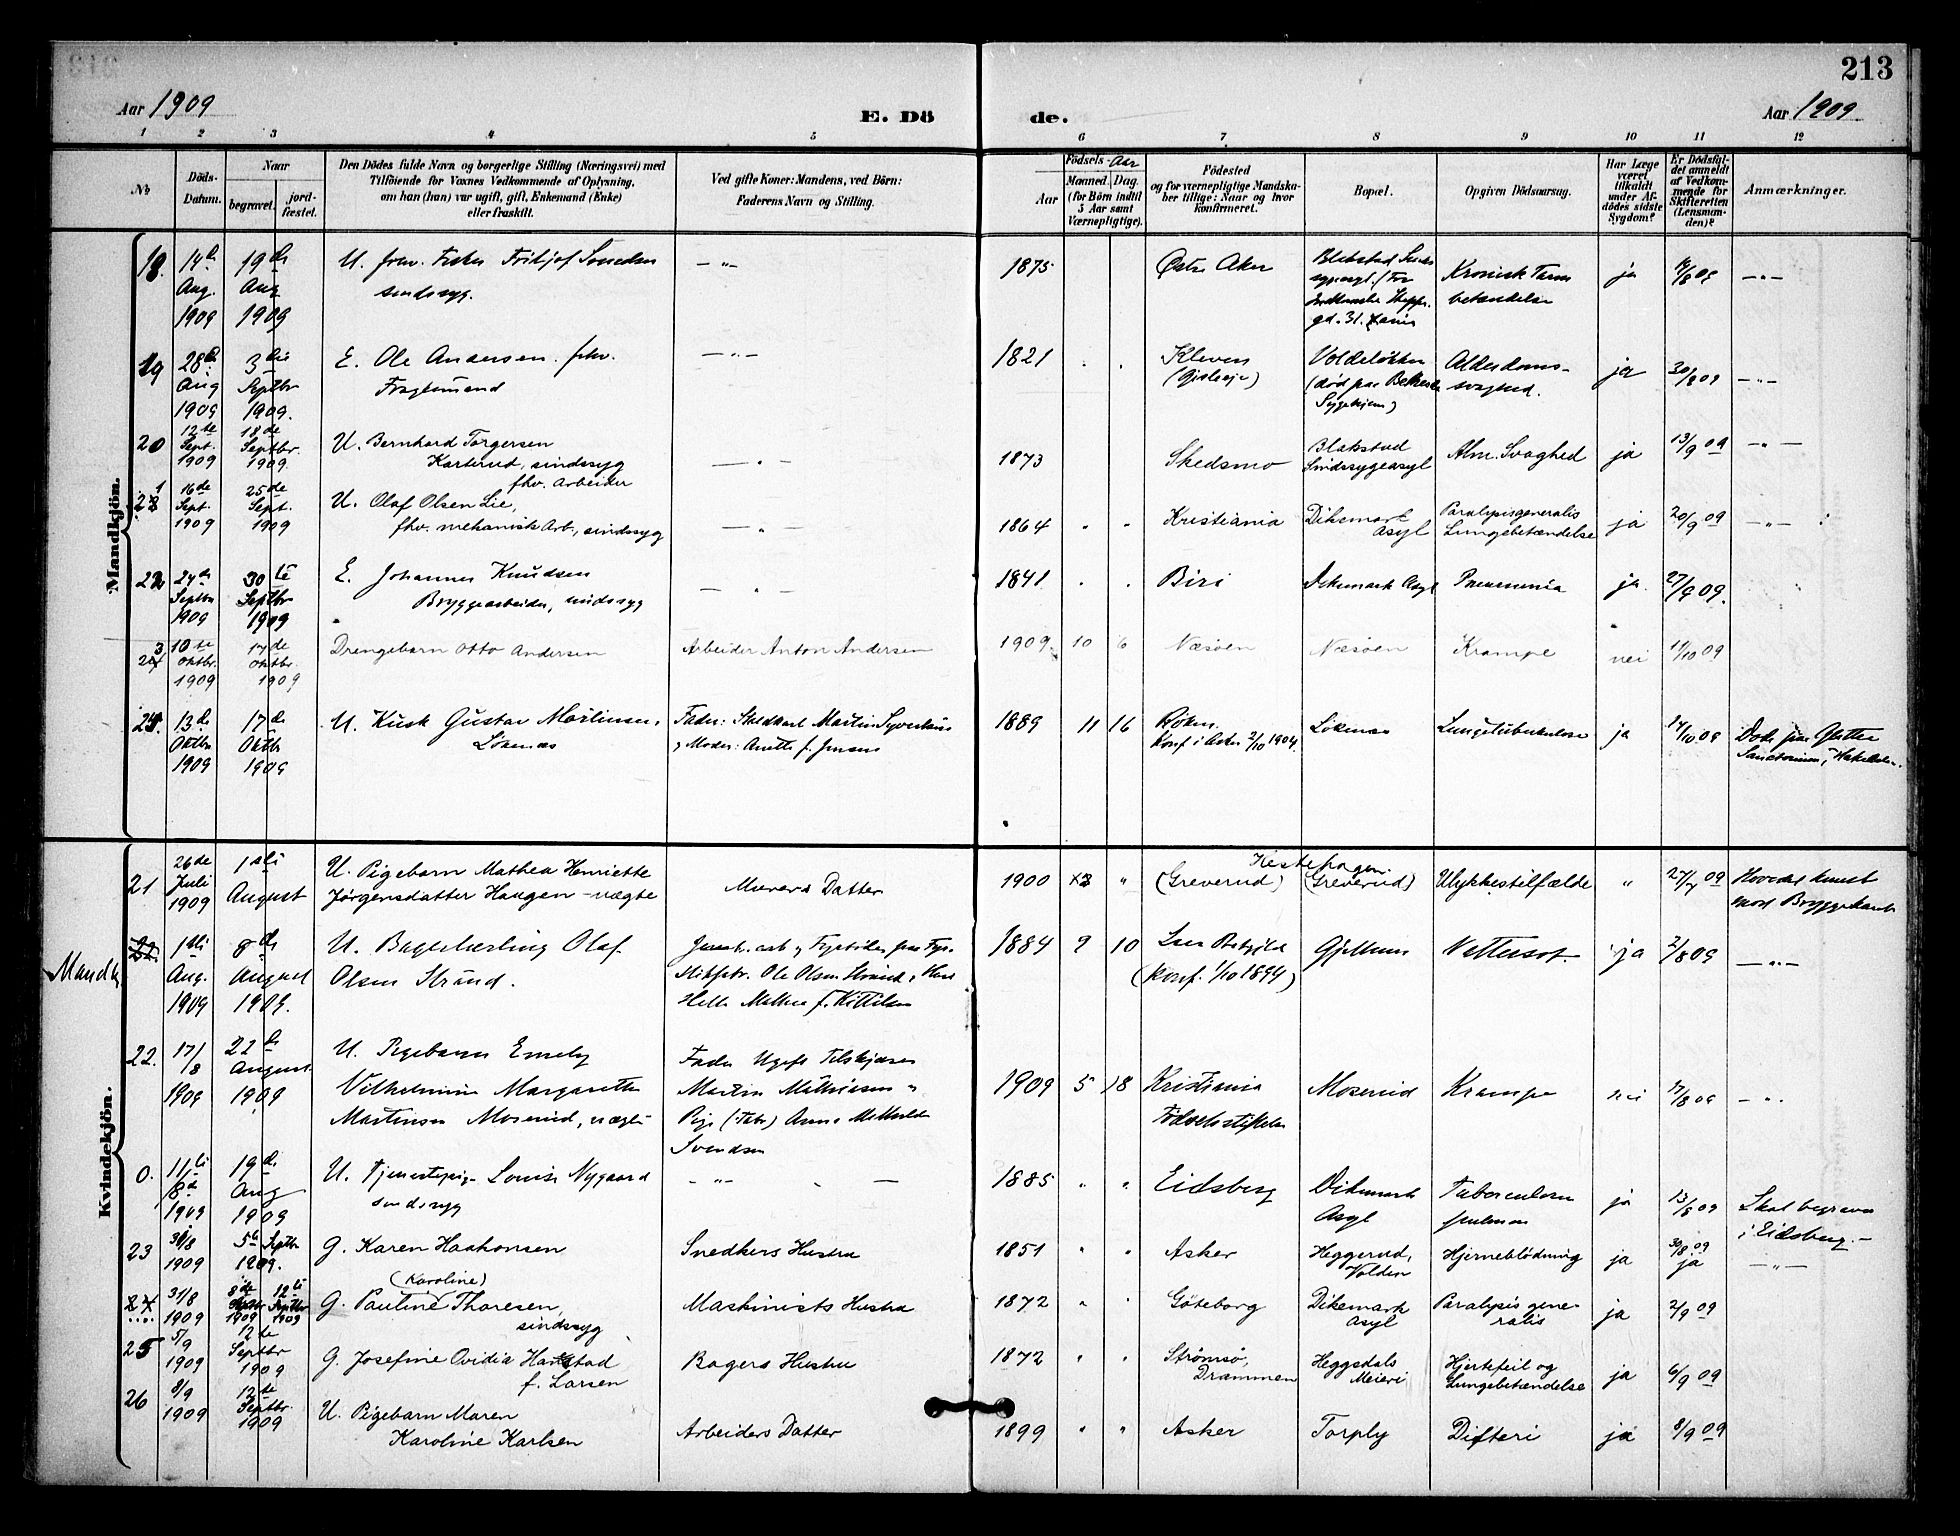 213
Aar 1909
E. Dö
de.
Aar 1909
1 2 3 4 5 6 7 8 9 10 11 12
No
Döds-
Datum.
Naar
begravet.
jord-
fæstet.
Den Dödes fulde Navn og borgerlige Stilling (Næringsvei) med
Tilföiende for Voxnes Vedkommende af Oplysning,
om han (hun) var ugift, gift, Enkemand (Enke)
eller fraskilt.
Ved gifte Koner: Mandens, ved Börn:
Faderens Navn og Stilling.
Födsels-Aar
Aar
Maaned. Dag.
(for Börn indtil
5 Aar samt
Værnepligtige).
Födested
og for værnepligtige Mandska-
ber tillige: Naar og hvor
konfirmeret.
Bopæl.
Opgiven Dödsaarsag.
Har Læge
været
tilkaldt
under Af-
dödes sidste
Sygdom?
Er Dödsfal-
det anmeldt
af Vedkom-
mende for
Skifteretten
(Lensman-
den)?
Anmærkninger.
Mandkjön.
18. 14de Aug. 1909 19de Aug 1909
U. frhv. Fisker Fritjof
sindssyg.
— " —
1875
Østre Aker
Blakstad
Kronisk Tarm
betændelse
ja
— " —
19 28de Aug 1909 3die Septbr 1909.
E. Ole Andersen. frhv.
Fragtemand
— " —
1821 " "
Kleven
Voldeløkken
(død paa
Sygehjem)
Alderdoms-
svaghed.
ja
30/8 09
— " —
20 12te Sept. 1909 18de Septbr. 1909.
U. Bernhard Torgersen
Karterud, sindssyg
fhv. Arbeider
— " —
1873
Skedsmo
Blakstad
Sindssygeasyl
Alm. Svaghed
ja
13/9 09
— " —
21 16de Sept. 1909 25de Sept. 1909
U. Olaf Olsen Lie,
fhv. mekanisk Arb., sindssyg
— " —
1864 " "
Kristiania
Dikemark
Asyl
Paralysis generalis
Lungebetændelse
ja
20/9 09
— " —
22 24de Septbr 1909 30te Septbr 1909
E. Johannes Knudsen
Bryggearbeider, sindssyg
— " —
1841 " "
Biri
Dikemark Asyl
Pneumonia
ja.
27/9 09.
23 10te Oktbr. 1909 17de Oktbr. 1909
Drengebarn Otto Andersen
Arbeider Anton Andersen
1909. 10 6
Næsøen
Næsøen
Krampe
nei
11/10 09
24. 13de Oktbr 1909 17de Oktbr 1909
U. Kusk Gustav Martinsen,
Løkenæs
Fader: Martin Syvertsen
og Moder: Anette f. Jensen
1889 11 16
Røken.
Konf i Asker 2/10 1904.
Løkenæs
Lungetuberkulose
ja
14/10 09
Døde paa Glitre
Sanatorium, Hakadalen.
Kvindekjön.
21 26de Juli 1909 1ste August
U. Pigebarn Mathea Henriette
Jørgensdatter Haugen - uægte
Murers Datter
1900 "
(Greverud)
(Greverud)
Ulykkestilfælde
"
27/7 09
Hovedet knust
mod Bryggekant
Mandk.
22. 1ste Aug. 1909 8de August 1909.
U. Olaf
Olsen Strand.
Ole Olsen Strand
Helle Mathea f. Kittilsen
1884 9 10
(Konf. 1/10 1899)
Gjellum
ja
2/8 09
— " —
22. 17/8 1909 22de August 1909
U. Pigebarn Emely
Vilhelmine Margarethe
Martinsen Moserud, uægte
Fader Ugift
Martin Mathisen
Pige Anna
Svendsen
1909 5 18
Kristiania
Fødselsstiftelse
Moserud
Krampe
nei
17/8 09
— " .
0. 11te 8de 1909 19de Aug 1909
U. Tjenestepige Louise Nygaard
sindssyg
— " — " —
1885 " "
Eidsberg
Dikemark
Asyl
Tuberculosis
pulmon
ja
13/8 09
Skal begraves
i Eidsberg.—
23 30/8 1909 5te Septbr 1909.
G. Karen Haakonsen
Snedkers Hustru
1851 " "
Asker
Heggerud,
Volden
Hjerneblödning
ja
30/8 09
ja
— " —
24 31/8 1909 8de Septbr 1909 12te Septbr 1909
G. Pauline (Karoline) Thoresen,
sindssyg
Maskinists Hustru
1872 " "
Göteborg
Dikemark
Asyl
Paralysis gene-
ralis
ja
2/9 09
25 5/9 1909 12te Septbr 1909
G. Josefine Ovidia Harstad
f. Larsen
Bagers Hustru
1872 " "
Strømsø,
Drammen
Heggedals
Meieri
Hjertefeil og
Lungebetændelse
ja
6/9 09
26 8/9 1909 12te Septbr. 1909
U. Pigebarn Maren
Karoline Karlsen
Arbeiders Datter
1899 " "
Asker
Torply
Difteri
ja
8/9 09